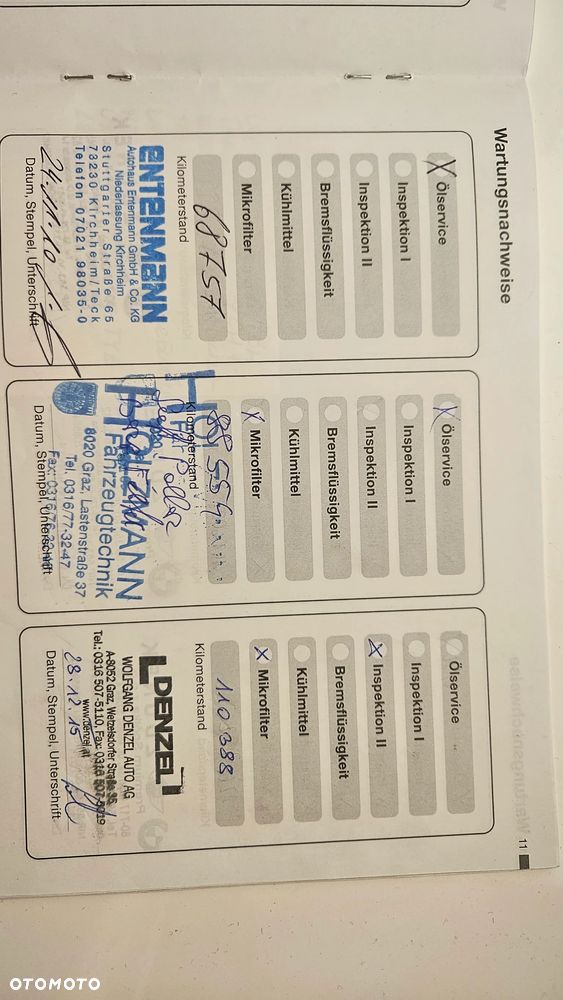 Wartungsnachweise
11
X Ölservice
Inspektion I
Inspektion II
Bremsflüssigkeit
Kühlmittel
Mikrofilter
68757
Kilometerstand
ENTENMANN
Autohaus Entenmann GmbH & Co. KG
Niederlassung Kirchheim
Stuttgarter Straße 65
73230 Kirchheim/Teck
Telefon 07021 98035-0
24.11.10
Datum, Stempel, Unterschrift
X Ölservice
Inspektion I
Inspektion II
Bremsflüssigkeit
Kühlmittel
X Mikrofilter
88554
Kilometerstand
Fahrzeugtechnik
8020 Graz, Lastenstraße 37
Tel. 0316/77-32-47
Datum, Stempel, Unterschrift
Ölservice
Inspektion I
X Inspektion II
Bremsflüssigkeit
Kühlmittel
X Mikrofilter
110388
Kilometerstand
DENZEL
WOLFGANG DENZEL AUTO AG
A-8052 Graz, Wetzelsdorfer Straße 35
Tel.: 0316 507-5110, Fax: 0316 507-5019
www.denzel.at
28.12.15
Datum, Stempel, Unterschrift
OTOMOTO